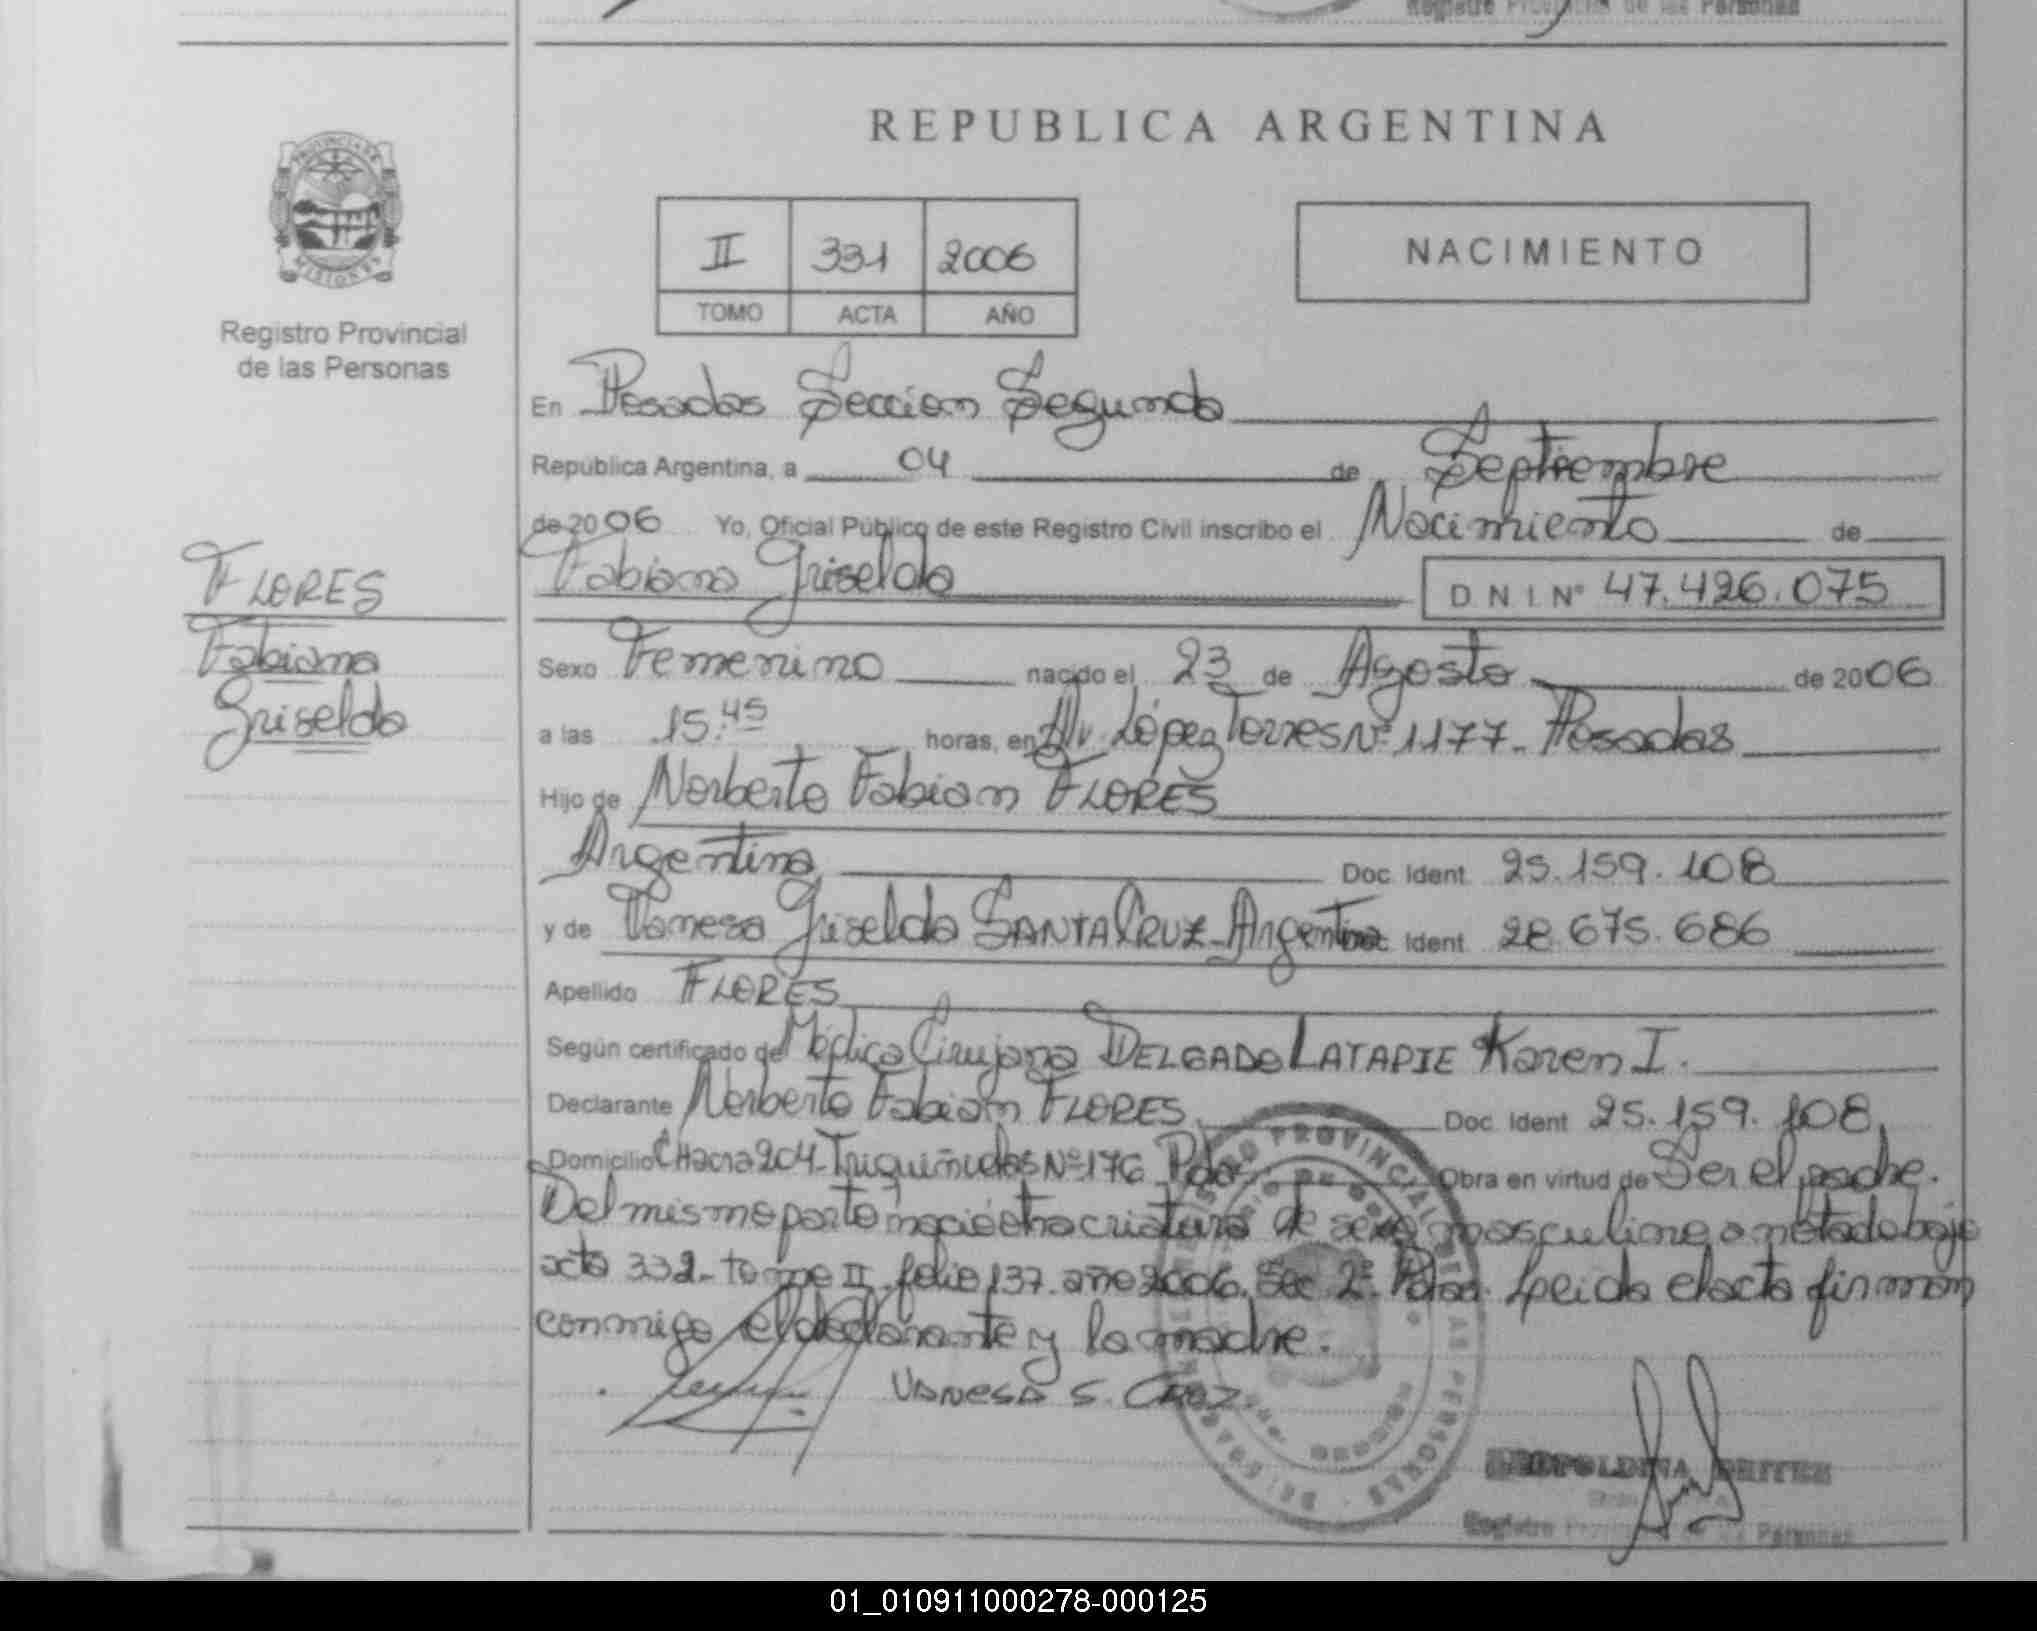 Registro Provincial de las Personas
PROVINCIA DE
MISIONES
Registro Provincial
de las Personas
REPUBLICA ARGENTINA
II 331 2006
TOMO ACTA AÑO
NACIMIENTO
En Posadas Seccion Segunda
República Argentina, a 04 de Septiembre
de 2006 Yo, Oficial Público de este Registro Civil inscribo el Nacimiento de
Fabiana Griselda D N I. Nº 47.426.075
FLORES
Fabiana
Griselda
Sexo Femenino nacido el 23 de Agosto de 2006
a las 15:45 horas, en Av. López Torres Nº 1177- Posadas
Hijo de Norberto Fabian FLORES
Argentina Doc. Ident. 25.159.108
y de Vanesa Griselda SANTA CRUZ-Argentina Doc. Ident. 28.675.686
Apellido FLORES
Según certificado de Médica Cirujana DELGADO LATAPIE Karen I.
Declarante Norberto Fabian FLORES Doc. Ident 25.159.108
Domicilio CHacra 204-Triquiñuelas Nº 176 Pdas. Obra en virtud de Ser el padre.
Del mismo parto nació otra criatura de sexo masculino anotado bajo
acta 332- tomo II. folio 137. año 2006. Sec 2ª Pdas. Leida el acta firman
conmigo el declarante y la madre.
VANESA S. CRUZ
REGISTRO PROVINCIAL DE LAS PERSONAS
LEOPOLDINA
Registro Provincial de las Personas
01_010911000278-000125